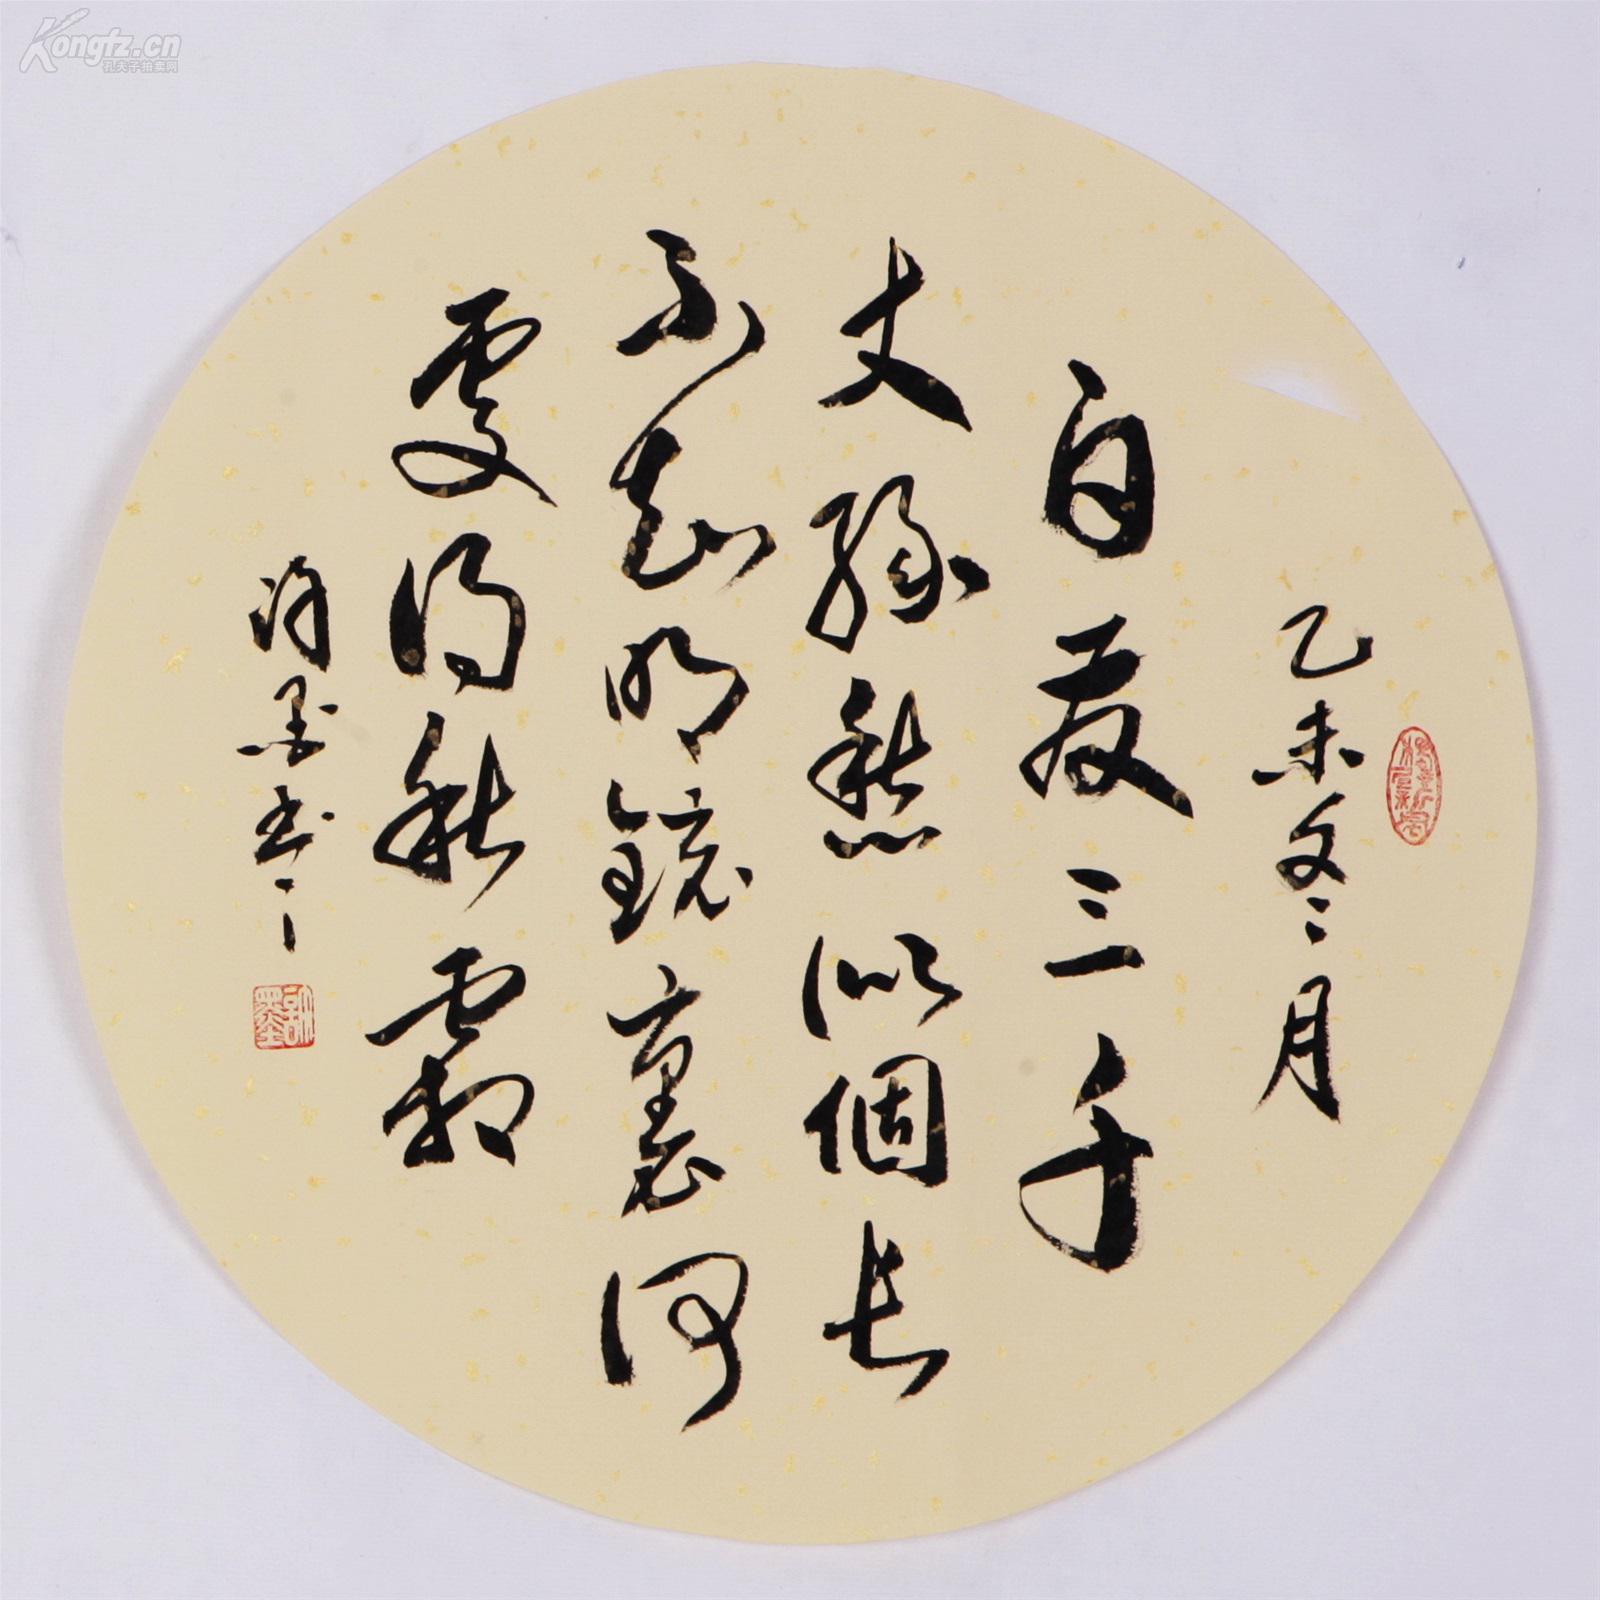 乙未冬月
白发三千
丈缘愁似個长
不知明镜裏何
处得秋霜
许墨书
許墨
Kongfz.cn
孔夫子拍卖网